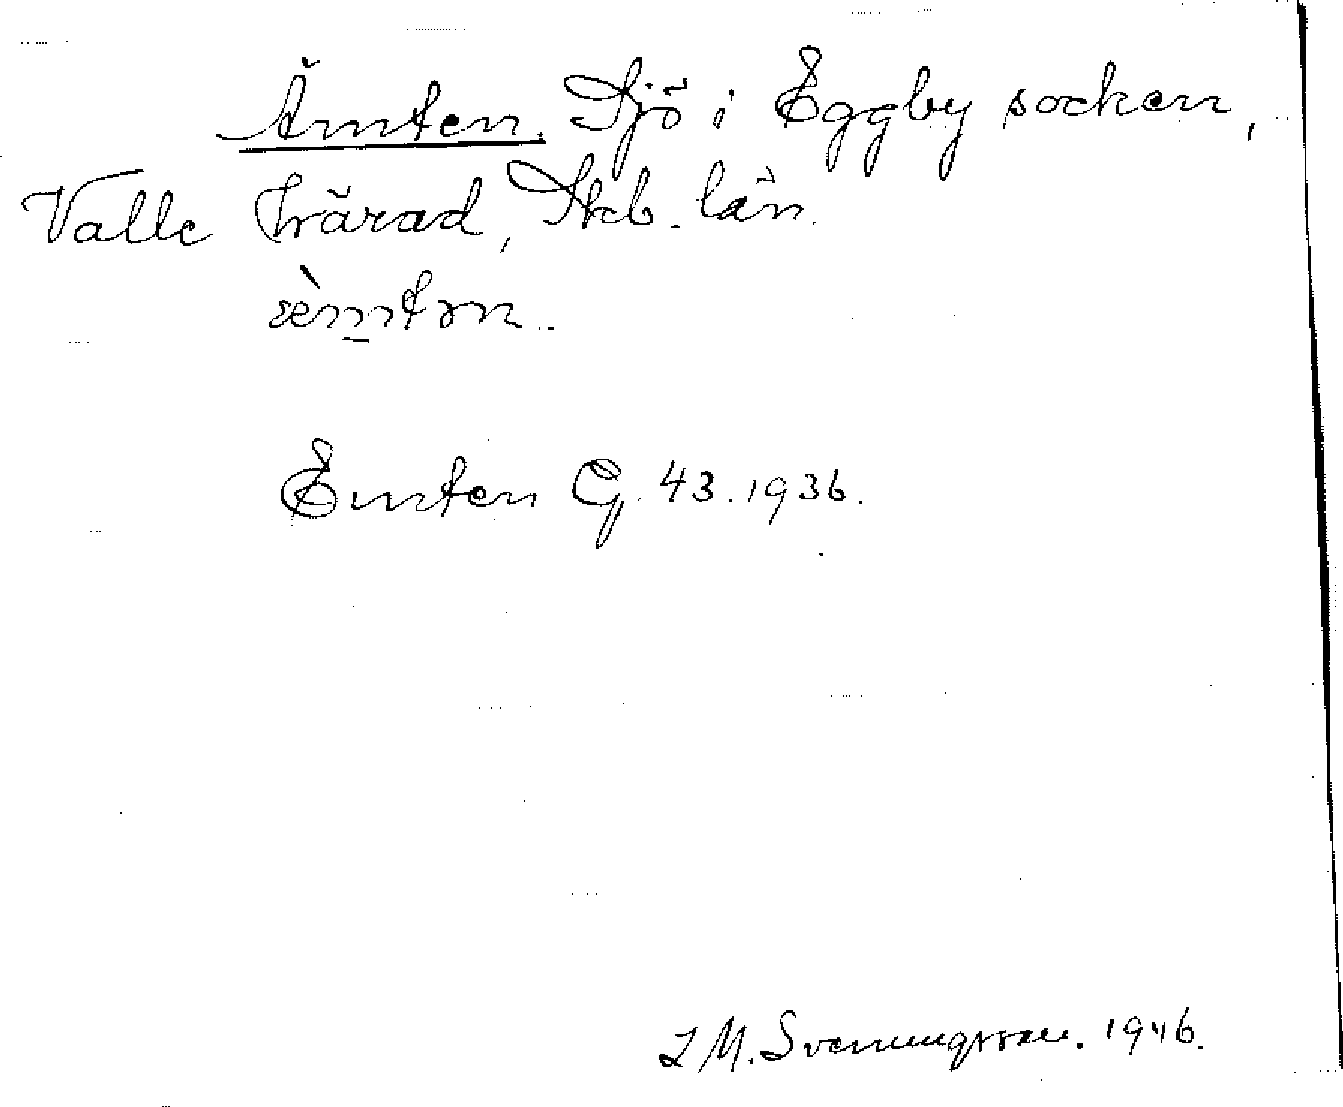 Ämten. Sjö i Eggby socken,
Valle härad, Skb. län.
æ̀mtən.
Emten G. 43. 1936.
I M. Svenungsson. 1946.